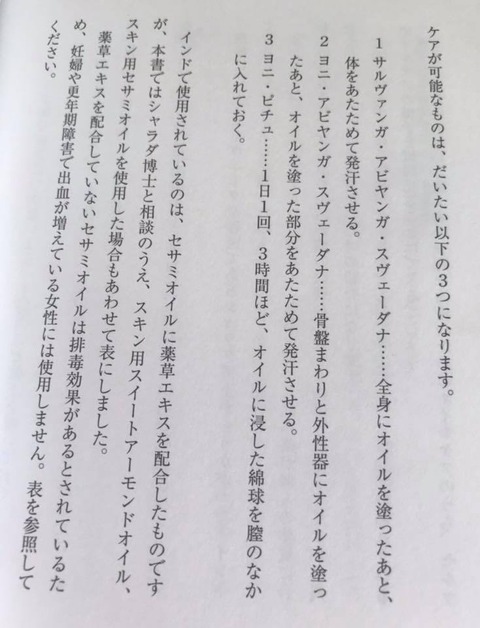 ケアが可能なものは、だいたい以下の3つになります。
1 サルヴァンガ・アビヤンガ・スヴェーダナ……全身にオイルを塗ったあと、
体をあたためて発汗させる。
2 ヨニ・アビヤンガ・スヴェーダナ……骨盤まわりと外性器にオイルを塗っ
たあと、オイルを塗った部分をあたためて発汗させる。
3 ヨニ・ピチュ……1日1回、3時間ほど、オイルに浸した綿球を膣のなか
に入れておく。
インドで使用されているのは、セサミオイルに薬草エキスを配合したものです
が、本書ではシャラダ博士と相談のうえ、スキン用スイートアーモンドオイル、
スキン用セサミオイルを使用した場合もあわせて表にしました。
薬草エキスを配合していないセサミオイルは排毒効果があるとされているた
め、妊婦や更年期障害で出血が増えている女性には使用しません。表を参照して
ください。